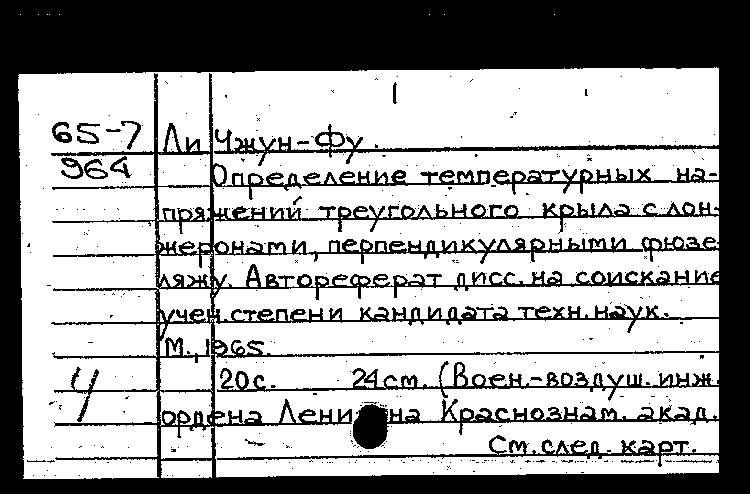 65-7
964
Ли Чжун-Фу.
Определение температурных на-
пряжений треугольного крыла с лон-
жеронами, перпендикулярными фюзе
ляжу. Автореферат дисс. на соискание
учен. степени кандидата техн. наук.
М., 1965.
20с. 24см. (Воен.-воздуш. инж.
ордена Ленина Краснознам. акад.
См. след. карт.